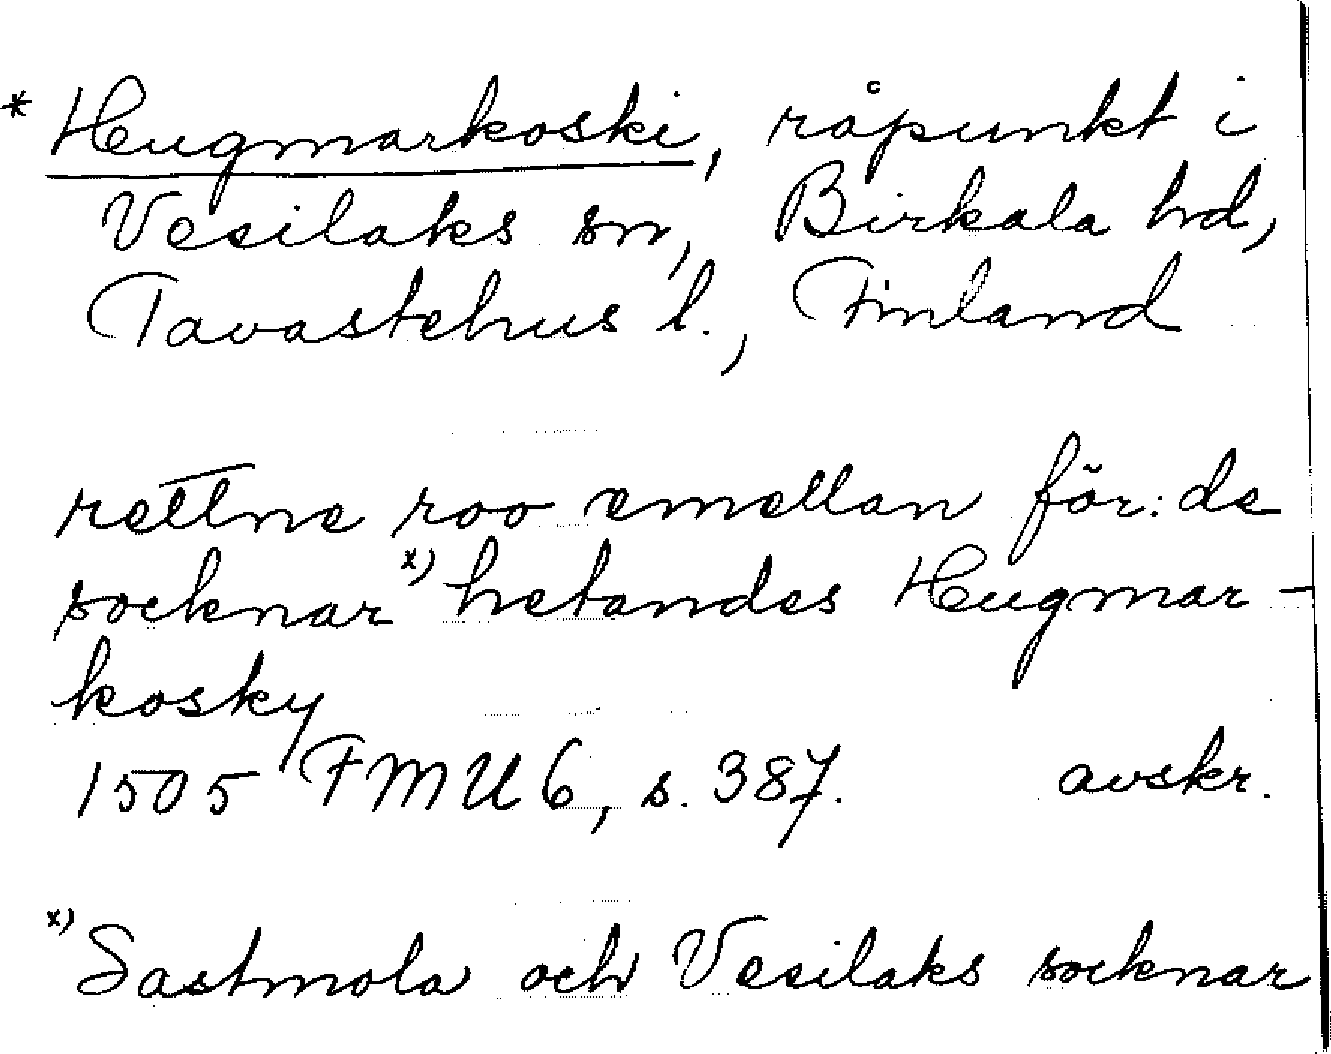 * Heugmarkoski, råpunkt i
Vesilaks sn, Birkala hd,
Tavastehus l., Finland
rettne roo emellan för:de
socknar x) hetandes Heugmar-
kosky
1505 FMU 6, s. 387. avskr.
x) Sastmola och Vesilaks socknar